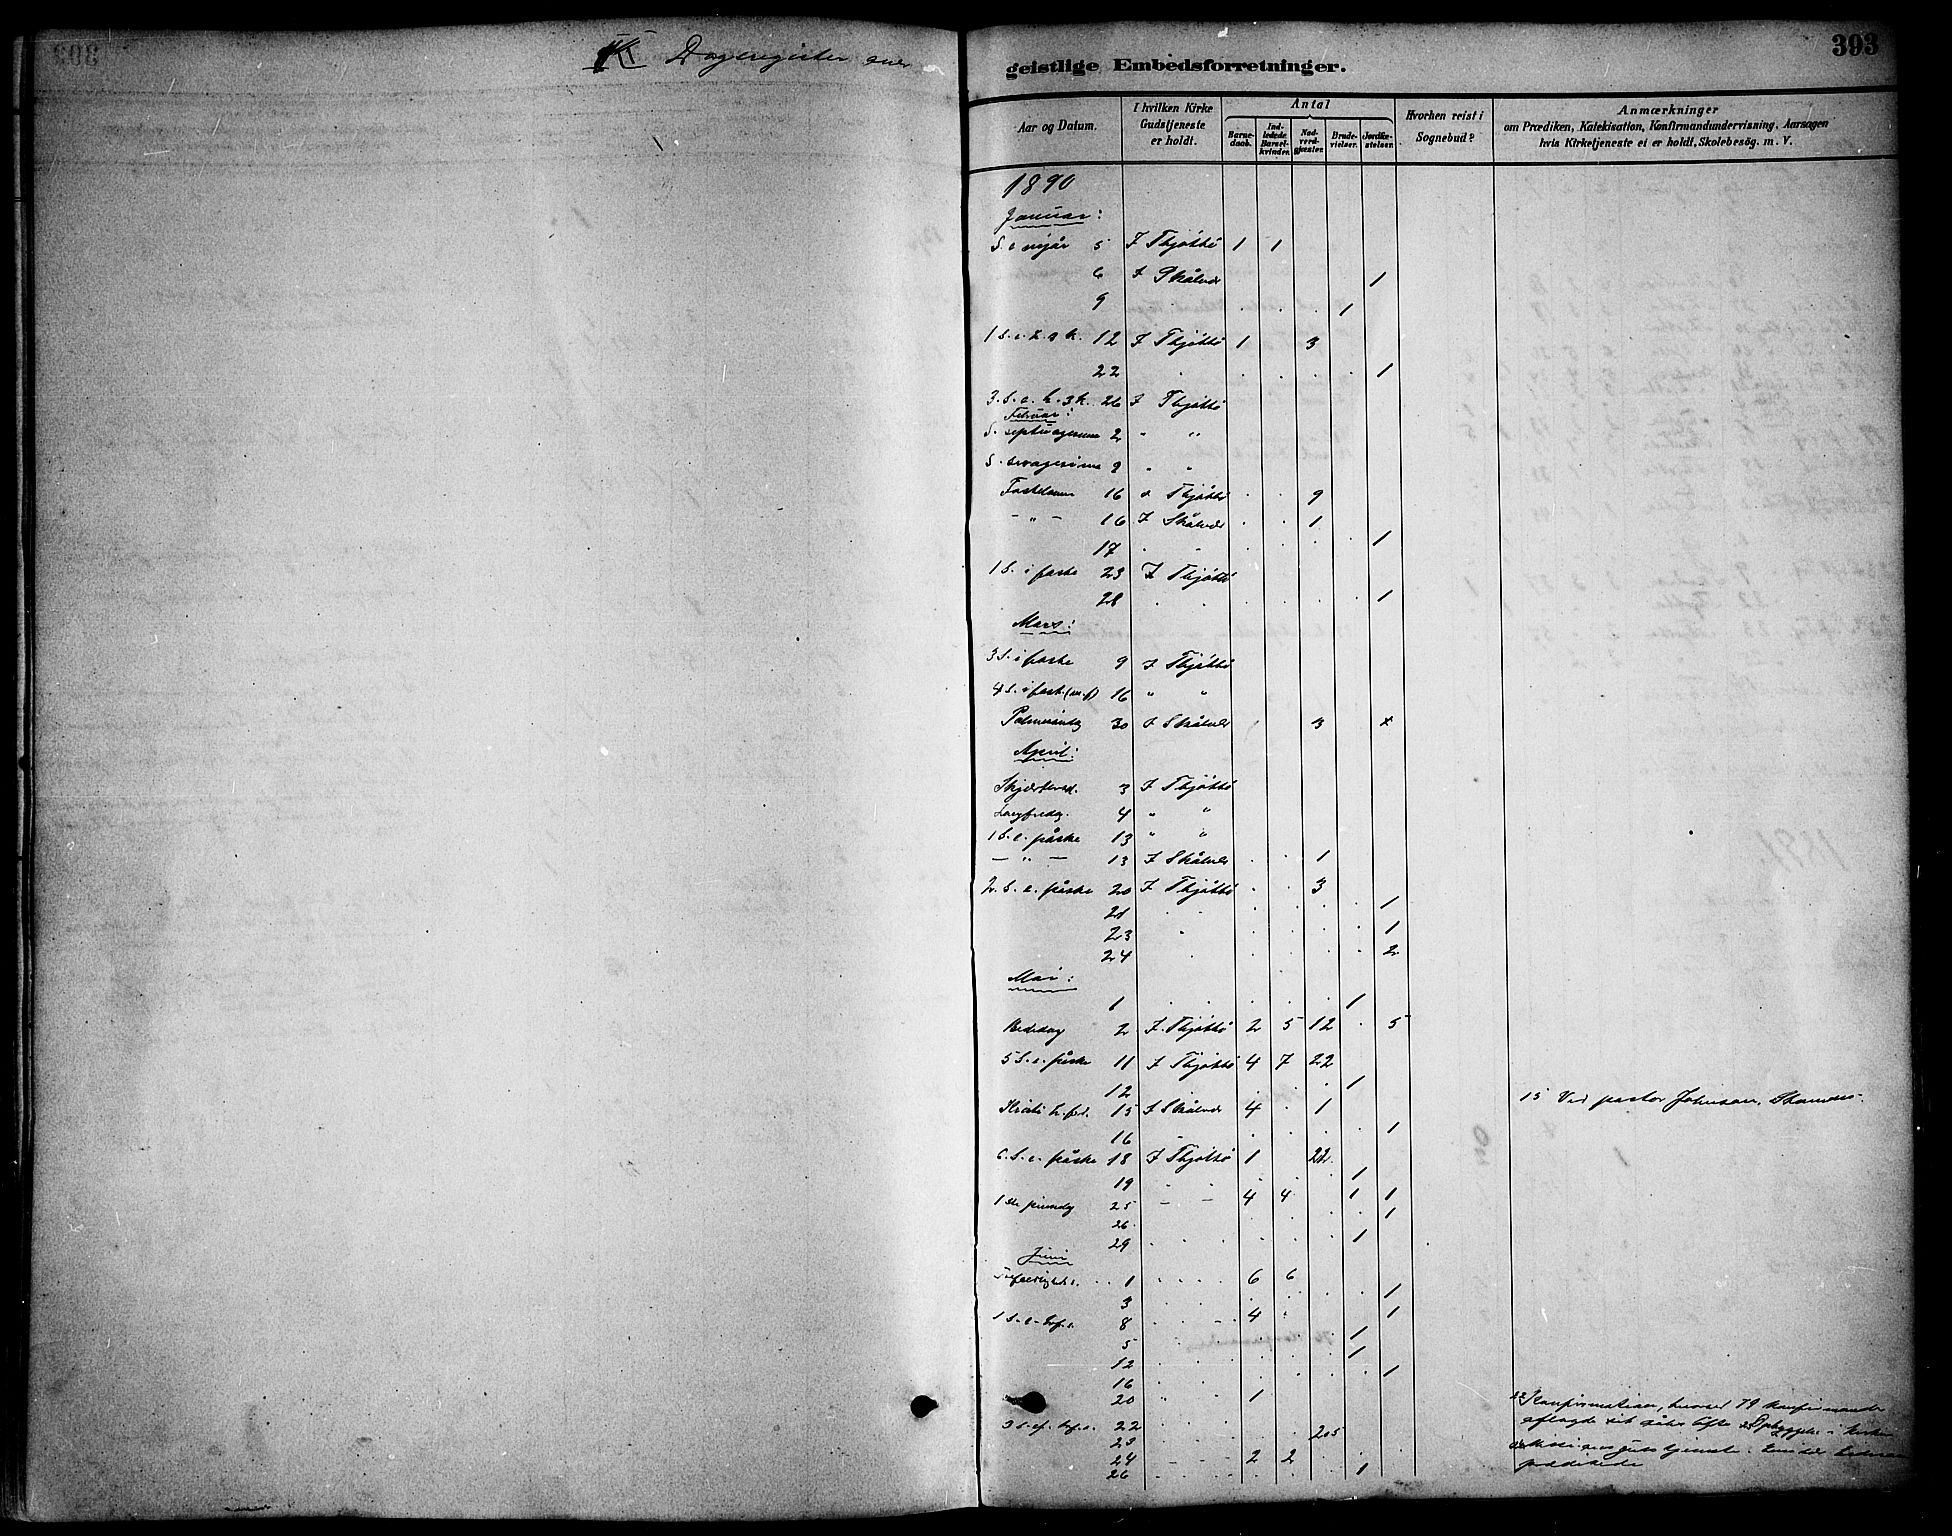 393
IX Dagregister over
geistlige Embedsforretninger.
Aar og Datum.
I hvilken Kirke Gudstjeneste er holdt.
Antal
Barnedaab.
Indledede Barselkvinder.
Nadverdgjæster.
Brudevielser.
Jordfæstelser.
Hvorhen reist i Sognebud?
Anmærkninger
om Prædiken, Katekisation, Konfirmandundervisning, Aarsagen
hvis Kirketjeneste ei er holdt, Skolebesög. m. V.
1890
Januar:
S. e. nyår 5 I Thjøttø 1 1
6 I Skålvær 1
9 1
1 S. e. h. 3 k. 12 I Thjøttø 1 3
22 1
3. S. e. h. 3 k. 26 I Thjøttø
Februar:
S. septuagesima 2 " "
S. sexagesima 9 " "
Fastelavn 16 I Thjøttø 9
- " - 16 I Skålvær 1
17 1
1 S. i faste 23 I Thjøttø
28 1
Mars:
3 S. i faste 9 I Thjøttø
4 S. i faste 16 " "
Palmesøndag 30 I Skålvær 3 x
April:
Skjærtorsd. 3 I Thjøttø
Langfredag. 4 " "
1 S. e. påske 13 " "
- " - 13 I Skålvær 1
2. S. e. påske 20 I Thjøttø 3
21 1
23 1
24 2
Mai:
1 1
Bededag 2 I Thjøttø 2 5 12 5
5 S. e. påske 11 I Thjøttø 4 7 22
12 1
Kristi h. fart. 15 I Skålvær 4 1 15 Ved pastor Johnson,
16 1
6. S. e. påske 18 I Thjøttø 1 22
19 1
1ste pinsedag 25 - - 4 4 1 1
26 1
29 1
Juni
Trefoldigheds. 1 6 6
3 1
1 S. e. tref. s. 8 4 1
5 1
12 1
16 1
20 " 1
3 S. ef. tref. s. 22 205
23
24 2 2
26 1
22 Konfirmation, hvorved 79 konfirmander
aflagde sit
prædikede